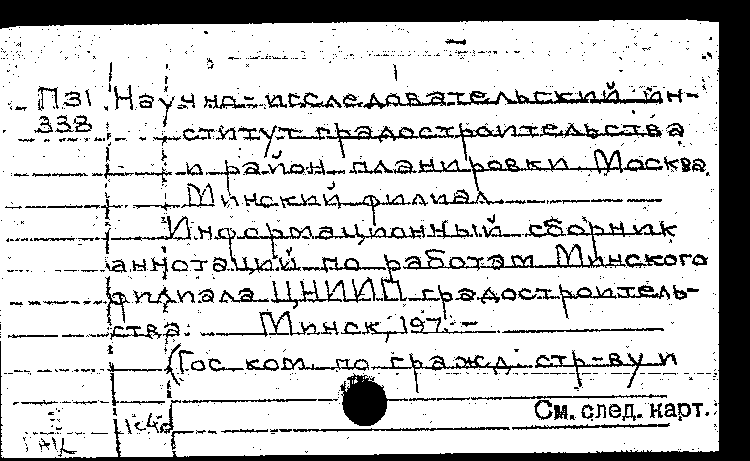 П31 Научно-исследовательский ин-
338 ститут градостроительства
и район. планировки. Москва.
Минский филиал.
Информационный сборник
аннотаций по работам Минского
филиала ЦНИИП градостроитель-
ства. Минск, 197 -
(Гос. ком. по гражд. стр-ву и
См. след. карт.